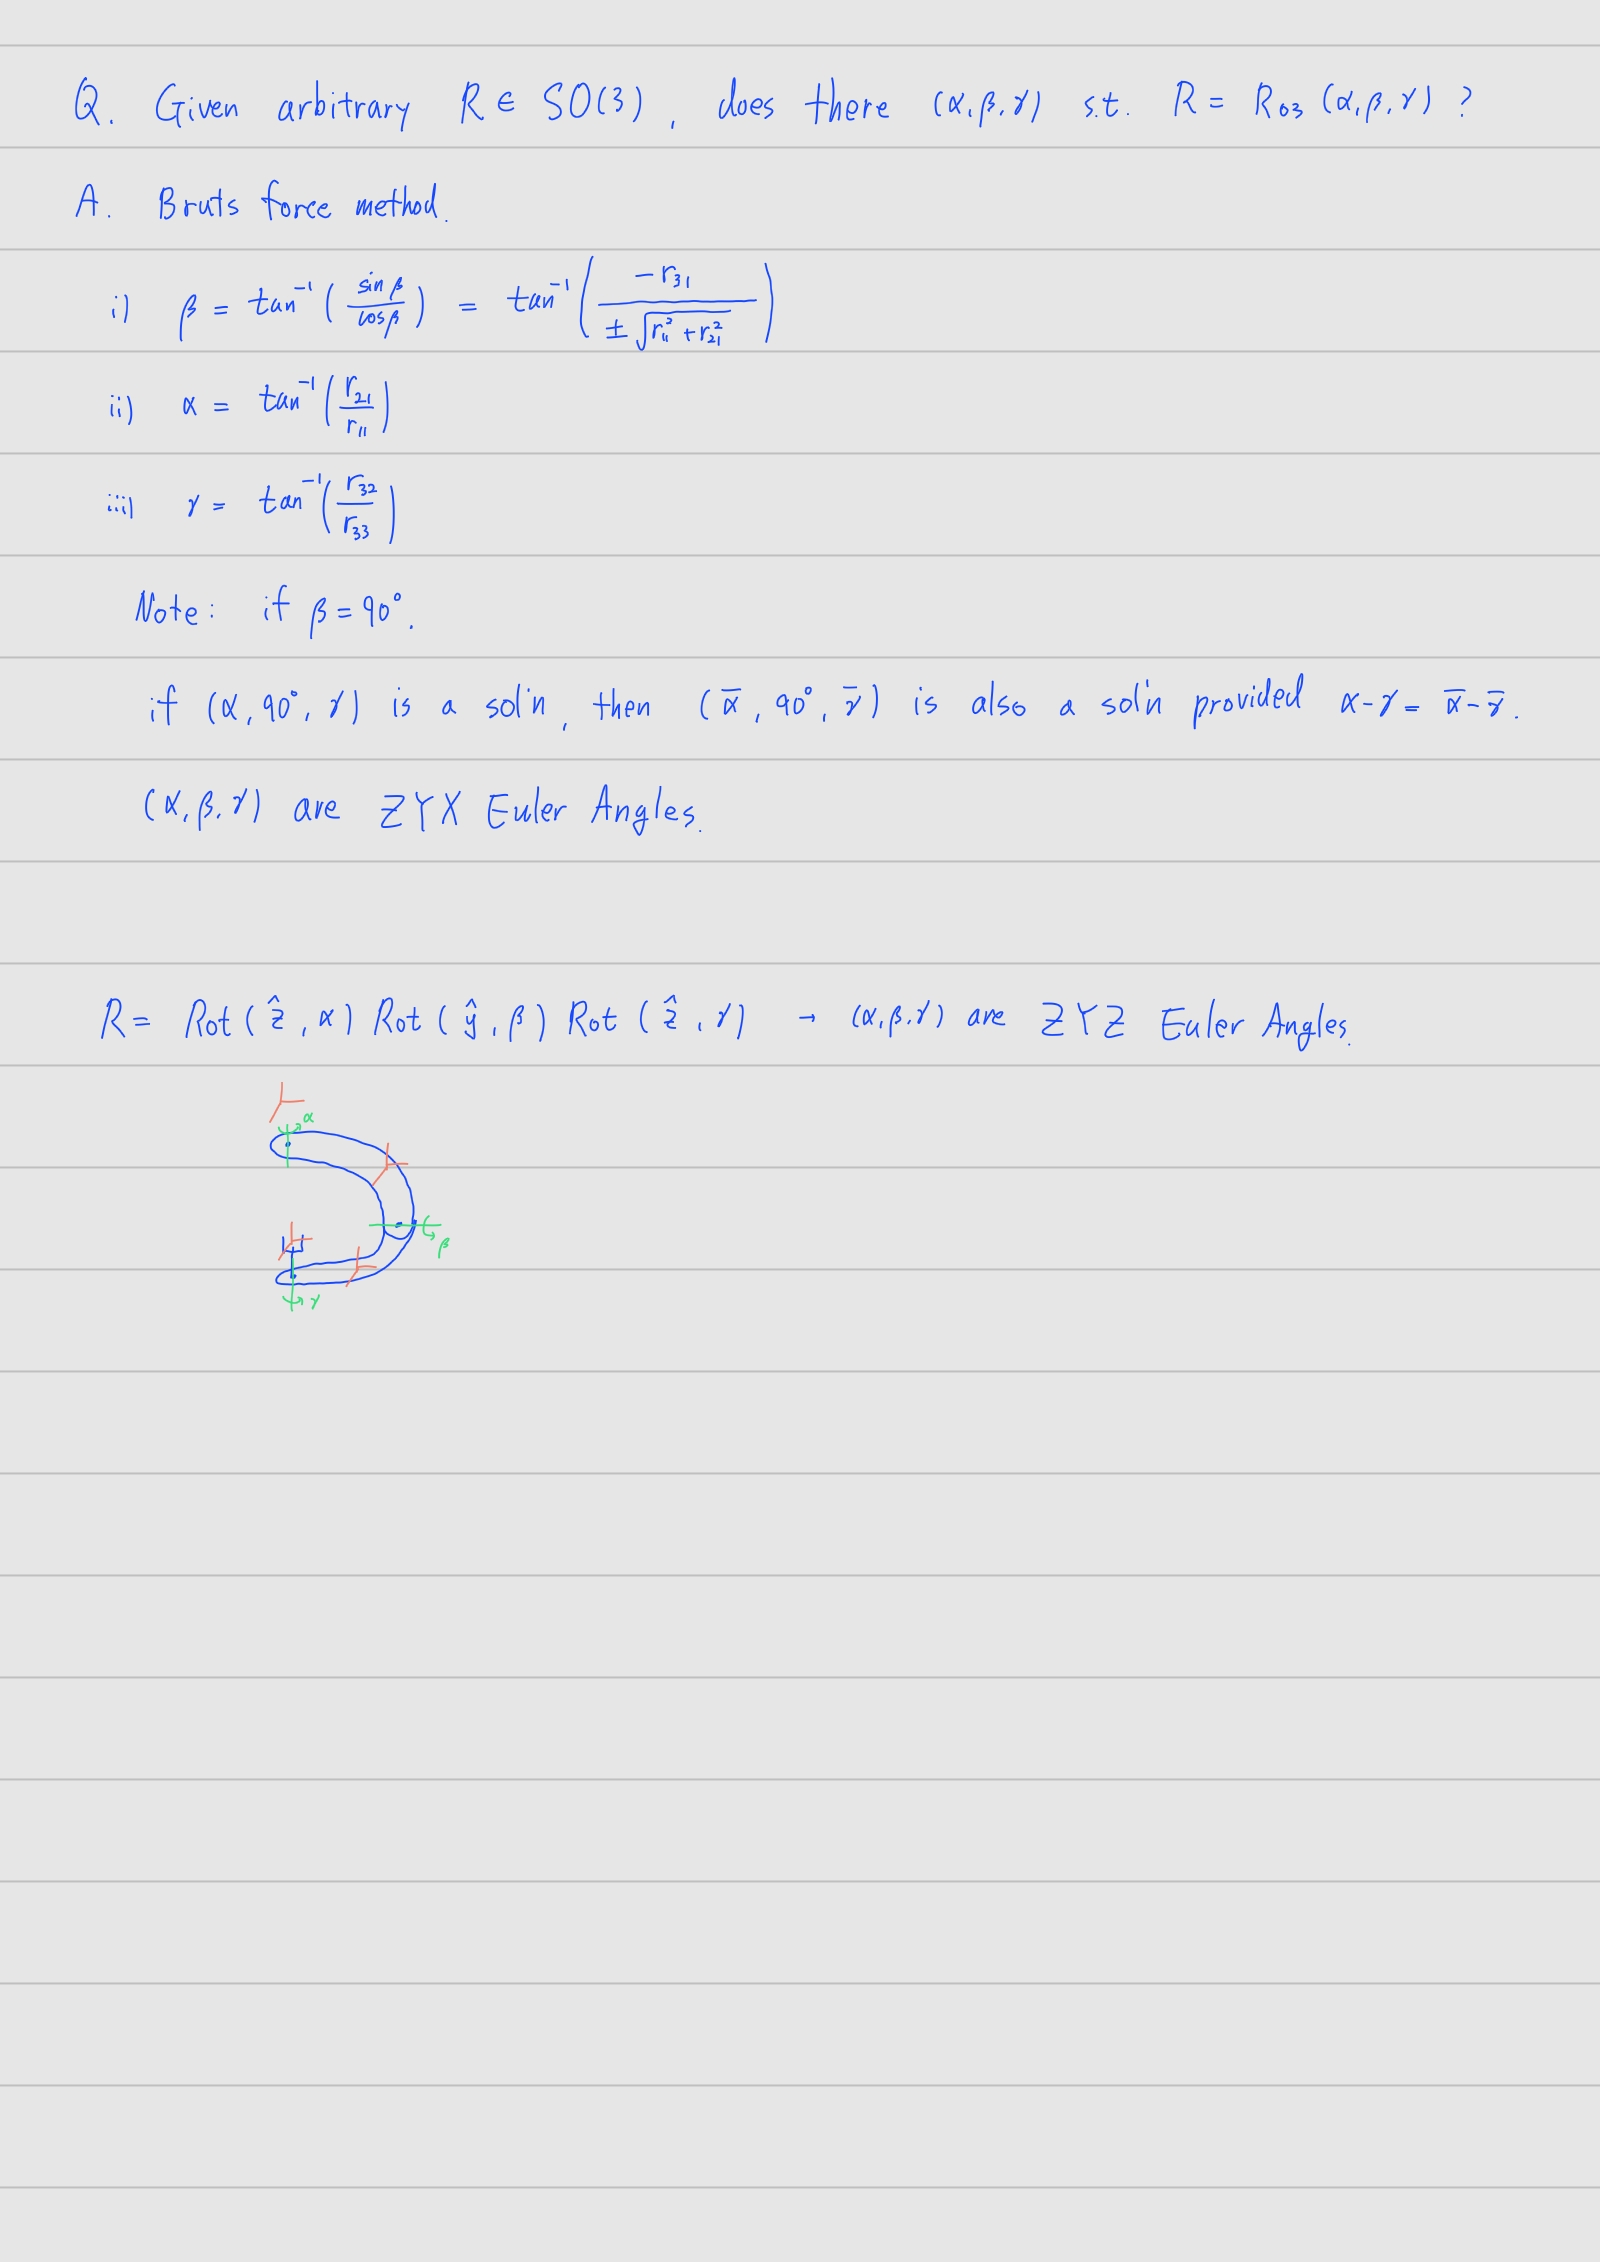 Q. Given arbitrary R ∈ SO(3), does there (α, β, γ) s.t. R = R₀₃ (α, β, γ) ?
A. Bruts force method.
i) β = tan⁻¹ ( sin β / cos β ) = tan⁻¹ ( -r₃₁ / ± √(r₁₁² + r₂₁²) )
ii) α = tan⁻¹ ( r₂₁ / r₁₁ )
iii) γ = tan⁻¹ ( r₃₂ / r₃₃ )
Note: if β = 90°.
if (α, 90°, γ) is a sol'n, then (ᾱ, 90°, γ̄) is also a sol'n provided α-γ = ᾱ-γ̄.
(α, β, γ) are ZYX Euler Angles.
R = Rot (ẑ, α) Rot (ŷ, β) Rot (ẑ, γ) → (α, β, γ) are ZYZ Euler Angles.
α
β
γ